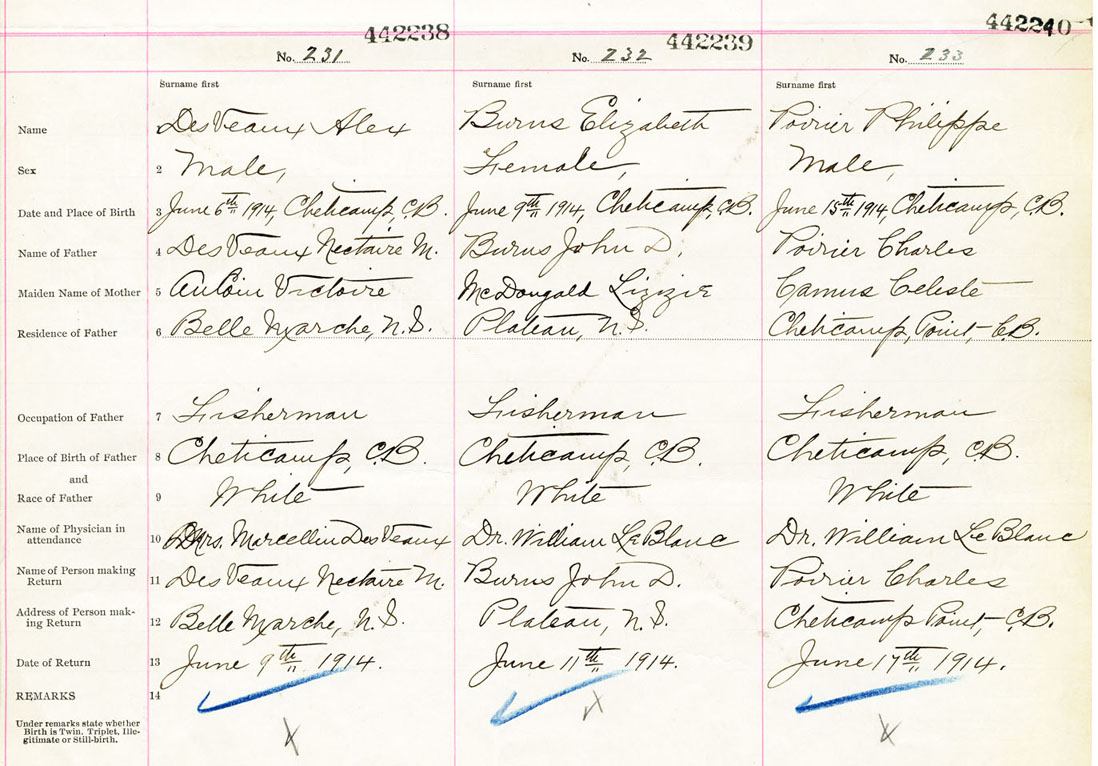 442238 442239 442240
No. 231 No. 232 No. 233
Surname first Surname first Surname first
Name DesVeaux Alex Burns Elizabeth Poirier Philippe
Sex 2 Male, Female, Male,
Date and Place of Birth 3 June 6th 1914, Cheticamp, C.B. June 9th 1914, Cheticamp, C.B. June 15th 1914 Cheticamp, C.B.
Name of Father 4 DesVeaux Nectaire M. Burns John D. Poirier Charles
Maiden Name of Mother 5 AuCoin Victoire McDougald Lizizie Camus Celeste
Residence of Father 6 Belle Marche, N.S. Plateau, N.S. Cheticamp, Point, C.B.
Occupation of Father 7 Fisherman Fisherman Fisherman
Place of Birth of Father 8 Cheticamp, C.B. Cheticamp, C.B. Cheticamp, C.B.
and
Race of Father 9 White White White
Name of Physician in
attendance 10 Mrs. Marcellin DesVeaux Dr. William LeBlanc Dr. William LeBlanc
Name of Person making
Return 11 DesVeaux Nectaire M. Burns John D. Poirier Charles
Address of Person mak-
ing Return 12 Belle Marche, N.S. Plateau, N.S. Cheticamp Point, C.B.
Date of Return 13 June 9th 1914. June 11th 1914. June 17th 1914.
REMARKS 14
Under remarks state whether
Birth is Twin, Triplet, Ille-
gitimate or Still-birth.
X X X